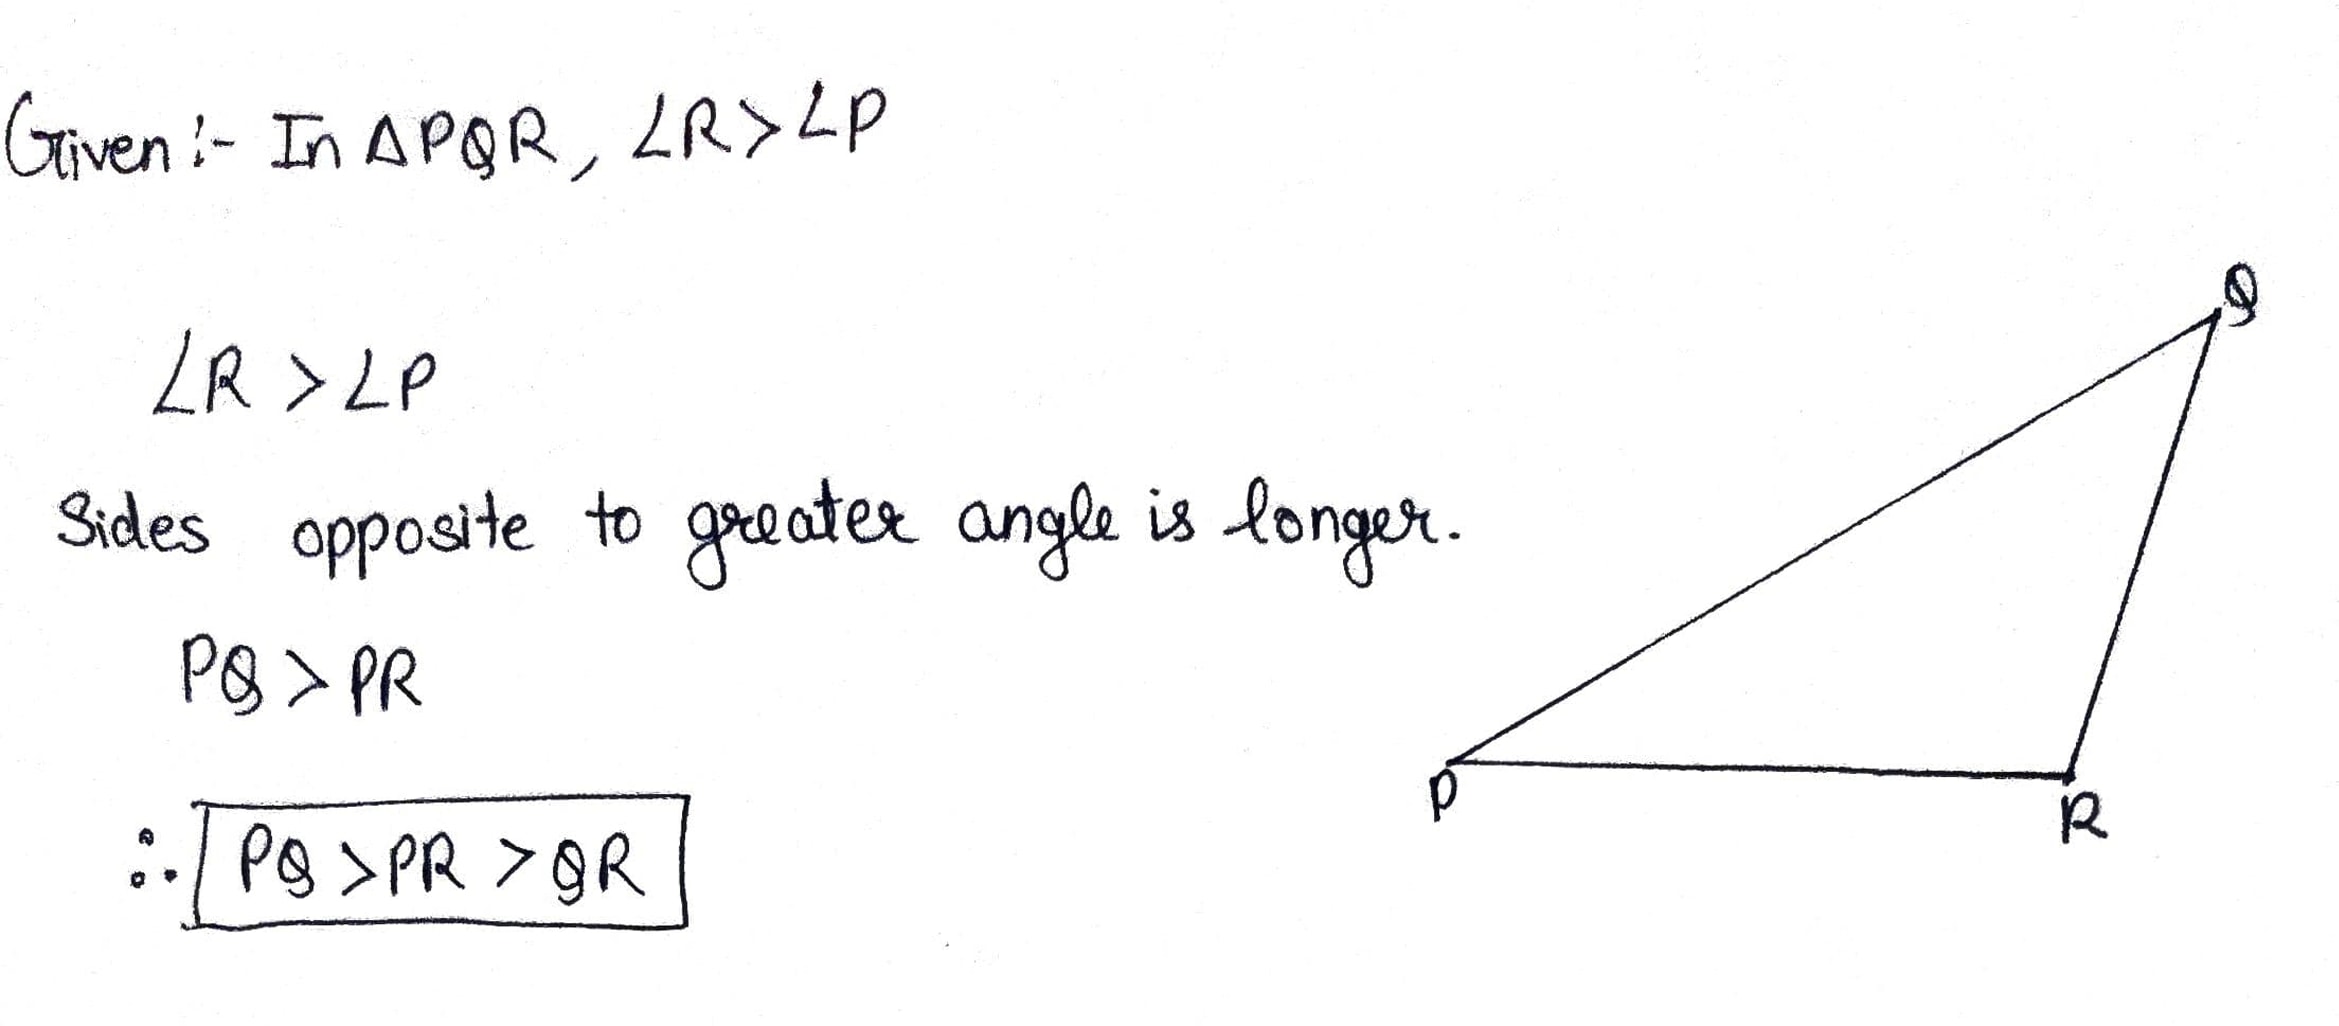 Given :- In ΔPQR, ∠R > ∠P
∠R > ∠P
Sides opposite to greater angle is longer.
PQ > PR
∴ PQ > PR > QR
Q
P
R